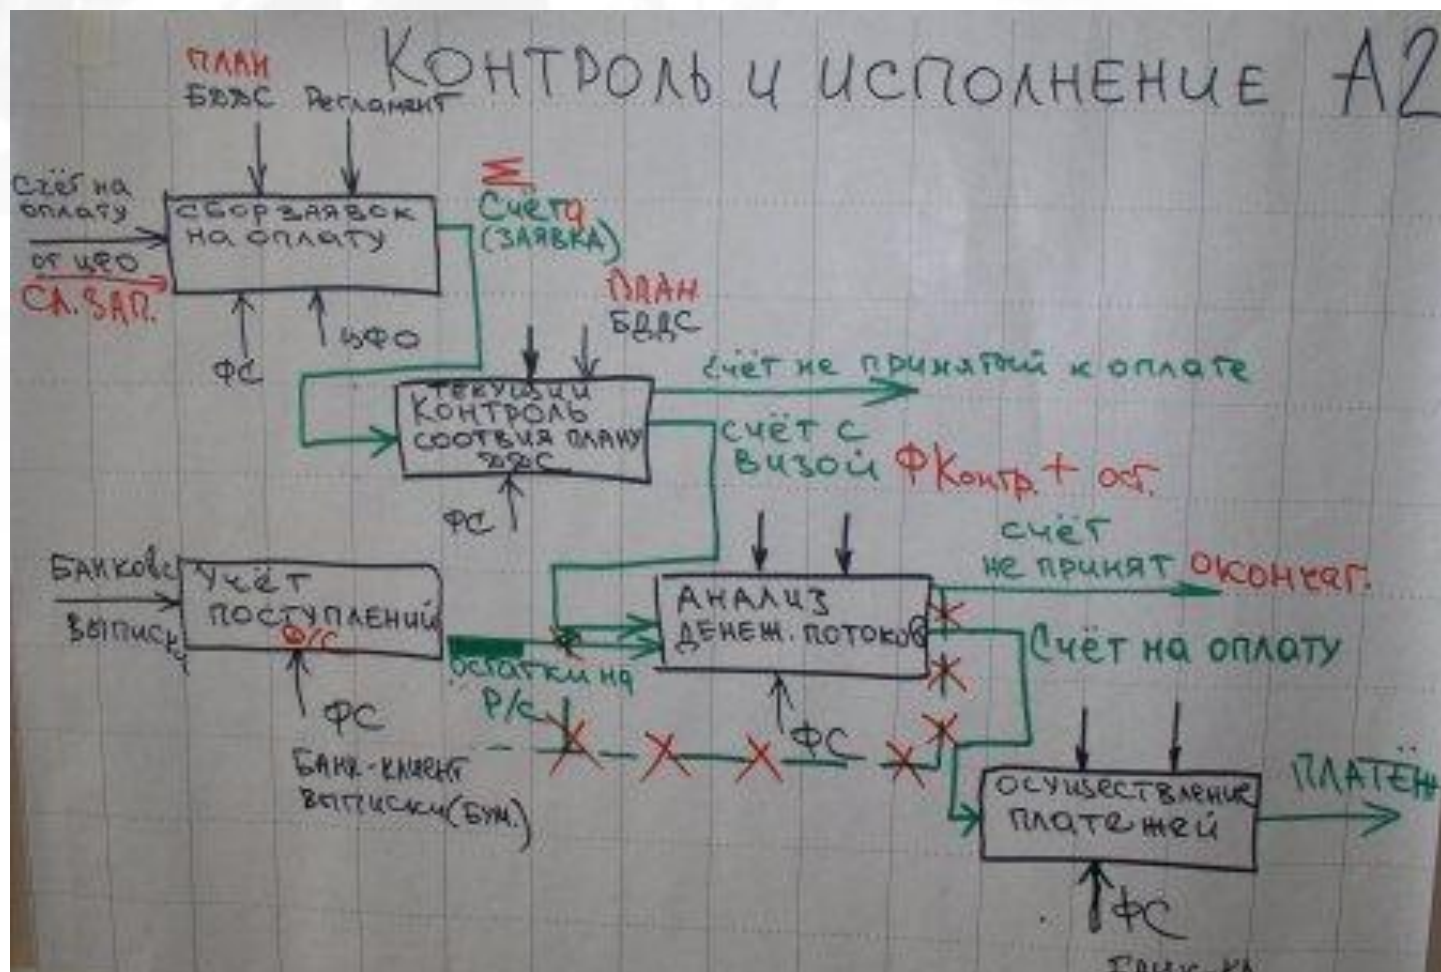 Контроль и исполнение А2
ПЛАН
БДДС Регламент
Счёт на
оплату
от ЦФО
СЛ. ЗАП.
СБОР ЗАЯВОК
НА ОПЛАТУ
ФС
ЦФО
Σ
Счета
(ЗАЯВКА)
ПЛАН
БДДС
ТЕКУЩИЙ
КОНТРОЛЬ
СООТВИЯ ПЛАНУ
ДДС
ФС
Счёт не принятый к оплате
счёт с
визой ФКонтр. + ост.
Банковс
выписки
Учёт
поступлений
ФС
Банк-клиент
выписки (бум.)
остатки на
Р/С
АНАЛИЗ
ДЕНЕЖ. ПОТОКОВ
ФС
счёт
не принят окончат.
Счёт на оплату
ОСУЩЕСТВЛЕНИЕ
ПЛАТЕЖЕЙ
ПЛАТЁЖ
ФС